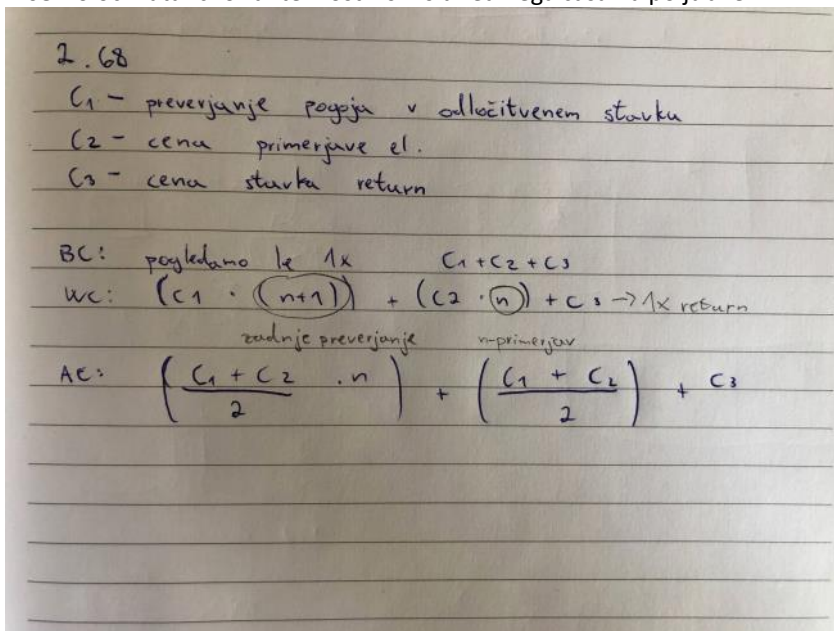 2.68
C1 - preverjanje pogoja v odločitvenem stavku
C2 - cena primerjave el.
C3 - cena stavka return
BC: pogledamo le 1x C1 + C2 + C3
WC: (C1 · (n+1)) + (C2 · n) + C3 -> 1x return
zadnje preverjanje n-primerjav
AC: ((C1 + C2)/2 · n) + ((C1 + C2)/2) + C3